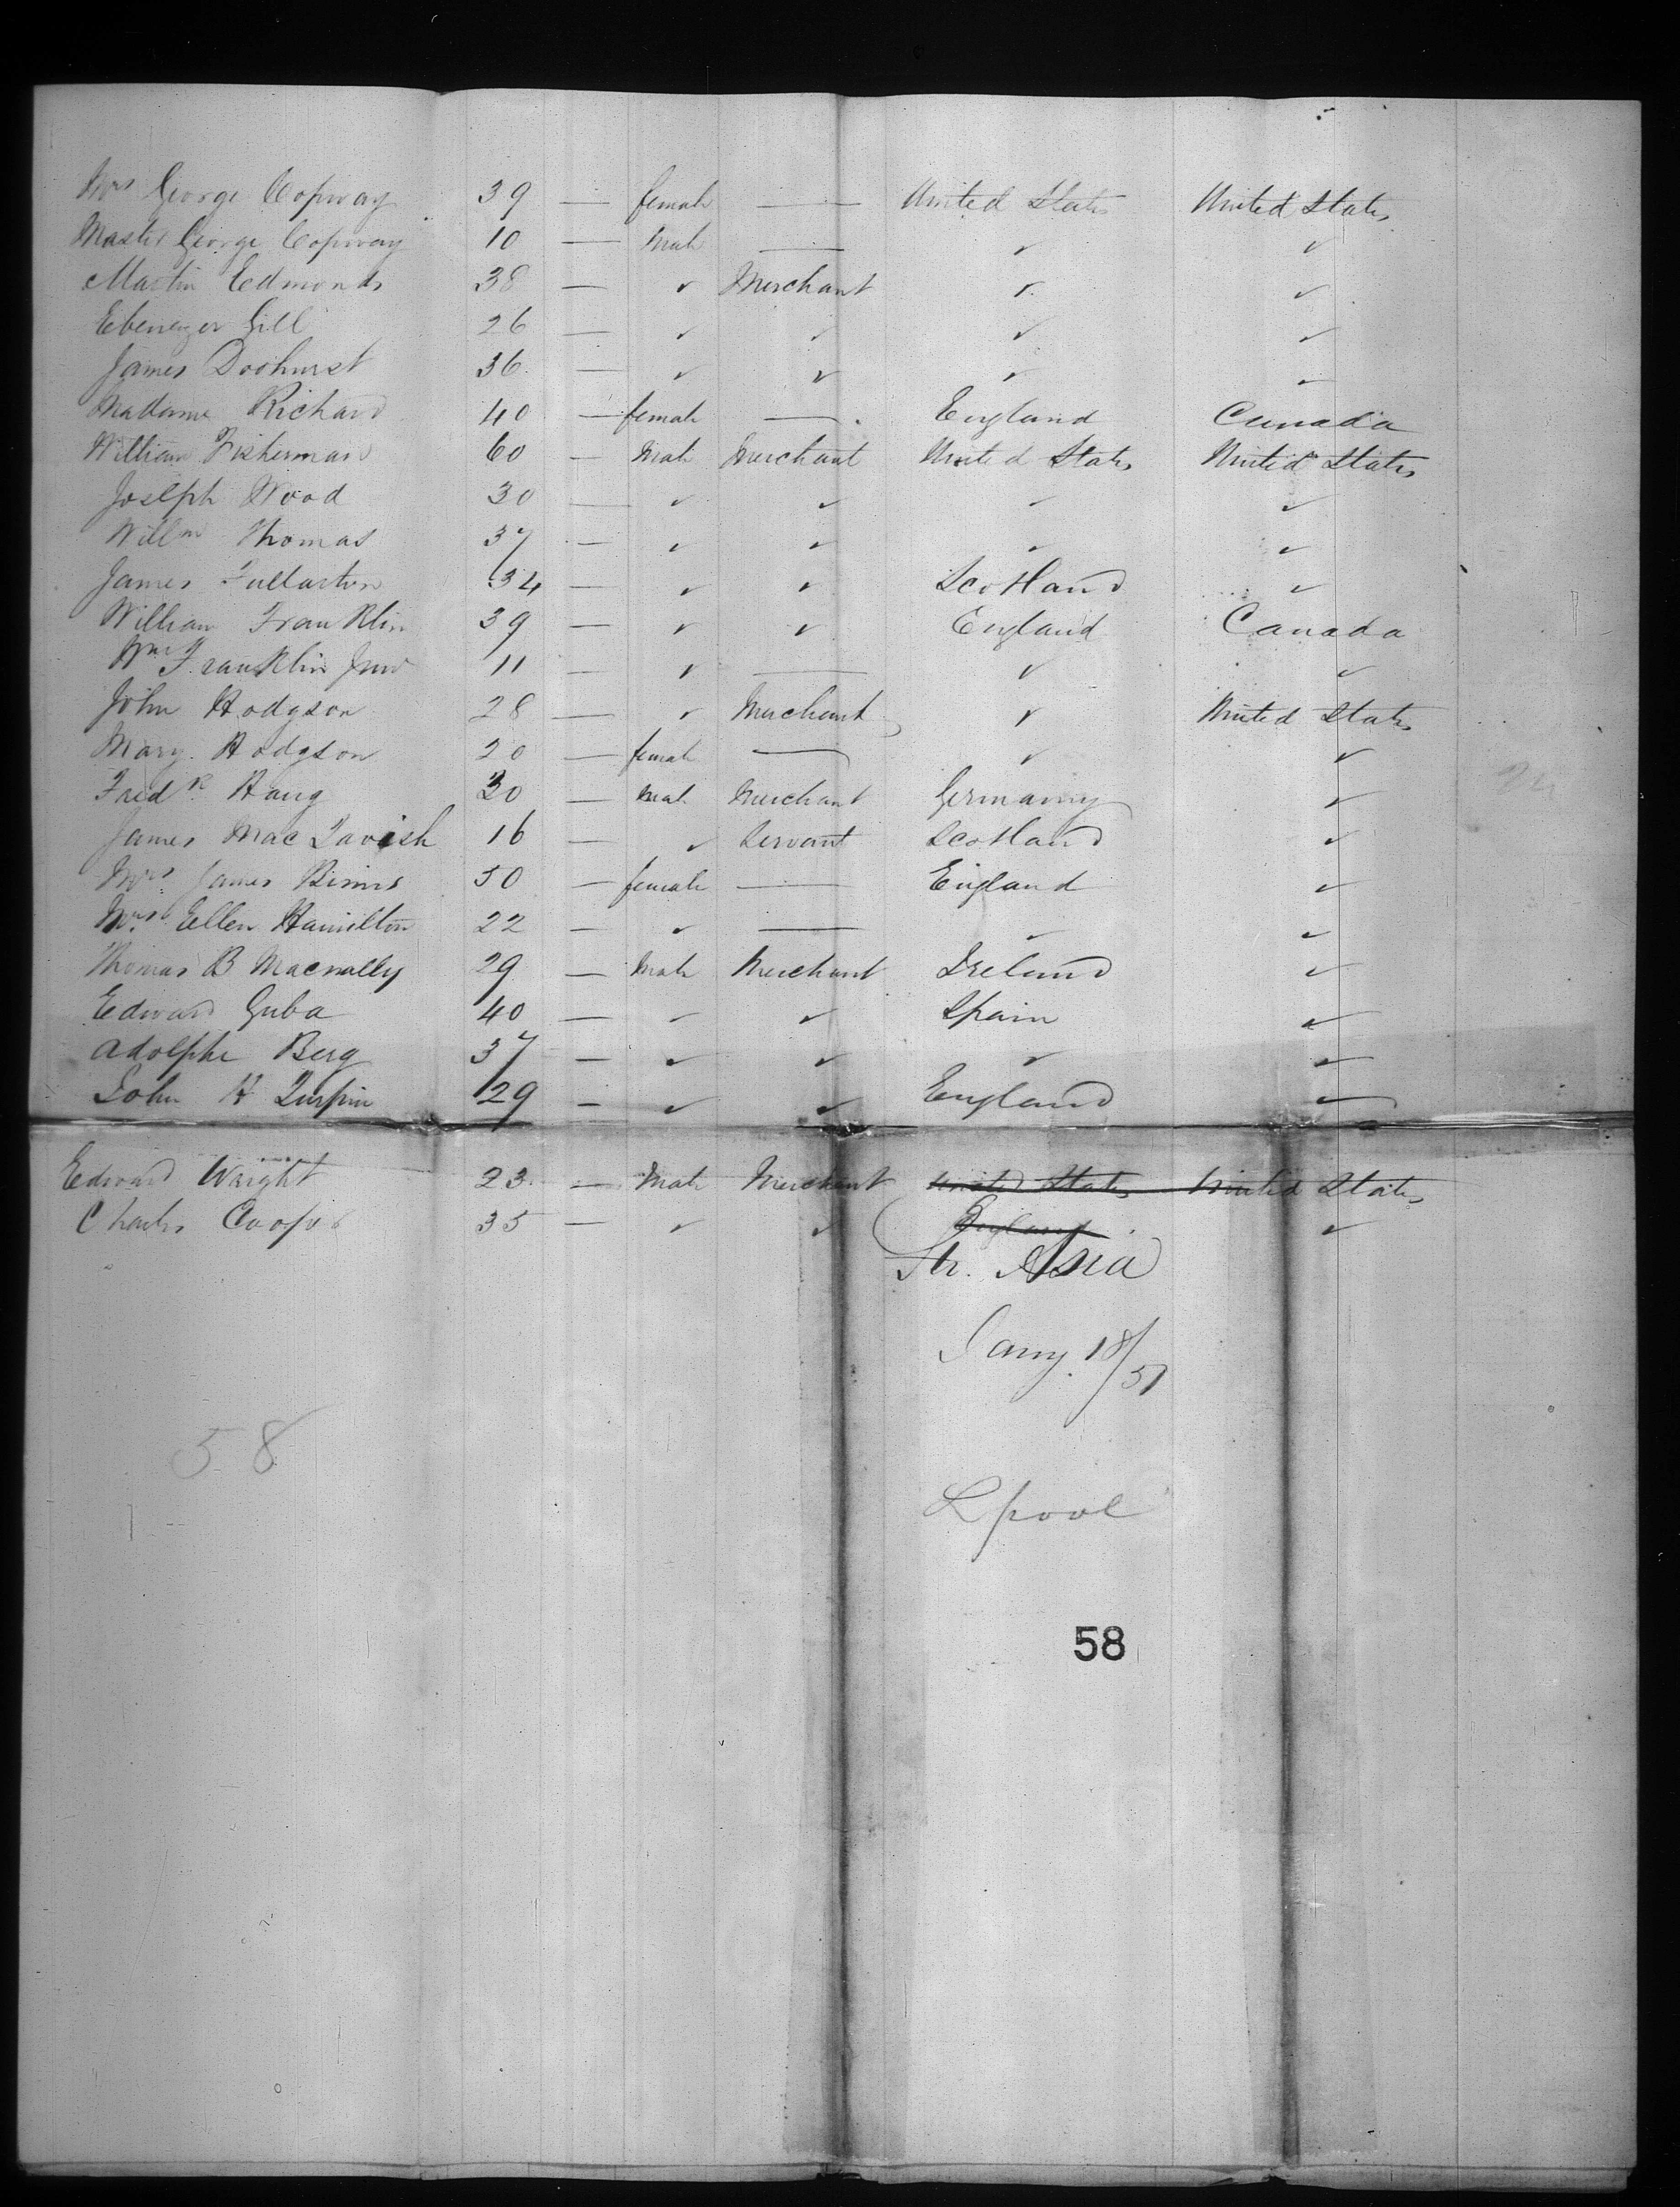 Mrs George Copway 39 — female — United States United States
Master George Copway 10 — Male — ✓ ✓
Martin Edmonds 38 — ✓ Merchant ✓ ✓
Ebenezer Gill 26 — ✓ ✓ ✓ ✓
James 36 — ✓ ✓ ✓ ✓
Madame Richard 40 — female — England Canada
William Fisherman 60 — Male Merchant United States United States
Joseph Wood 30 — ✓ ✓ ✓ ✓
Willm Thomas 37 — ✓ ✓ ✓ ✓
James Fullarton 34 — ✓ ✓ Scotland ✓
William Franklin 39 — ✓ ✓ England Canada
Wm Franklin Junr 11 — ✓ — ✓ ✓
John Hodgson 28 — ✓ Merchant ✓ United States
Mary Hodgson 20 — female — ✓ ✓
Fredk Haug 30 — Male Merchant Germany ✓
James MacTavish 16 — ✓ Servant Scotland ✓
Mrs James Binns 50 — female — England ✓
Mrs Ellen Hamilton 22 — ✓ — ✓ ✓
Thomas B Macnally 29 — Male Merchant Ireland ✓
Edward Guba 40 — ✓ ✓ Spain ✓
Adolphe Berg 37 — ✓ ✓ ✓ ✓
John H Turpin 29 — ✓ ✓ England ✓
Edward Wright 23 — Male Merchant United States United States
Charles Cooper 35 — ✓ ✓ England ✓
Str. Asia
Jany. 18/51
58
Lpool
58